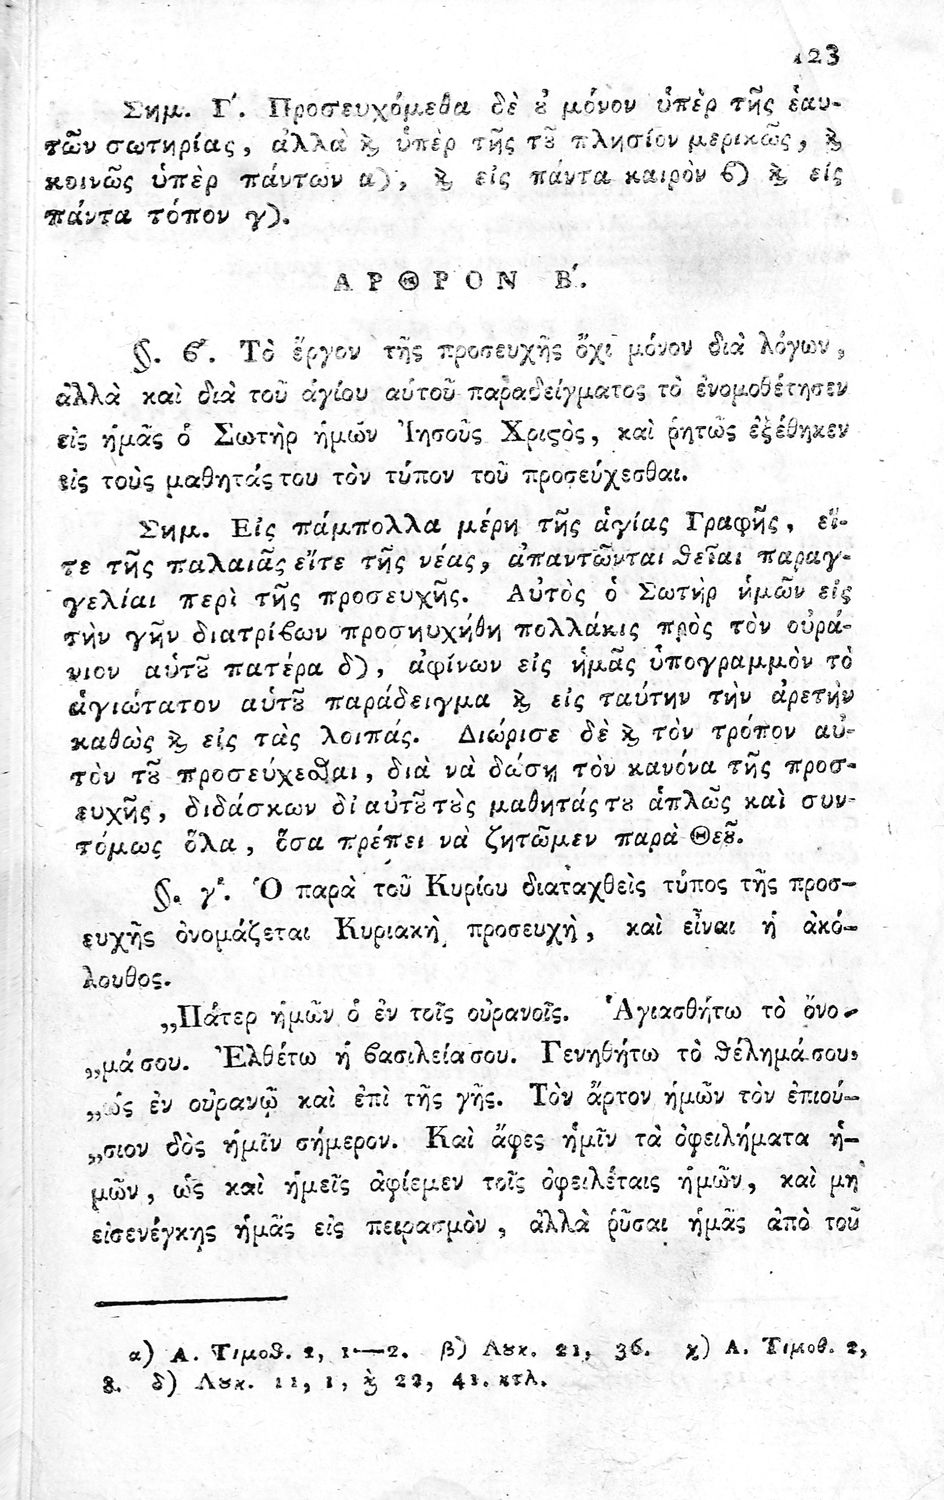 123
Σημ. Γ΄. Προσευχόμεθα δὲ ȣ̓ μόνον ὑπὲρ τῆς ἑαυ-
τῶν σωτηρίας, ἀλλὰ ϗ ὑπὲρ τῆς τȣ͂ πλησίον μερικῶς, ϗ
κοινῶς ὑπὲρ πάντων α), ϗ εἰς πάντα καιρὸν ϐ) ϗ εἰς
πάντα τόπον γ).
ΑΡΘΡΟΝ Β΄.
§. ϐ΄. Τὸ ἔργον τῆς προσευχῆς ὄχι μόνον διὰ λόγων,
ἀλλὰ καὶ διὰ τοῦ ἁγίου αὐτοῦ παραδείγματος τὸ ἐνομοθέτησεν
εἰς ἡμᾶς ὁ Σωτὴρ ἡμῶν Ἰησοῦς Χριϛὸς, καὶ ῥητῶς ἐξέθηκεν
εἰς τοὺς μαθητάς του τὸν τύπον τοῦ προσεύχεσθαι.
Σημ. Εἰς πάμπολλα μέρη τῆς ἁγίας Γραφῆς, εἴ-
τε τῆς παλαιᾶς εἴτε τῆς νέας, ἀπαντῶνται ϑεῖαι παραγ-
γελίαι περὶ τῆς προσευχῆς. Αὐτὸς ὁ Σωτὴρ ἡμῶν εἰς
τὴν γῆν διατρίϐων προσηυχήθη πολλάκις πρὸς τὸν οὐρά-
νιον αὑτȣ͂ πατέρα δ), ἀφίνων εἰς ἡμᾶς ὑπογραμμὸν τὸ
ἁγιώτατον αὑτȣ͂ παράδειγμα ϗ εἰς ταύτην τὴν ἀρετὴν
καθὼς ϗ εἰς τὰς λοιπάς. Διώρισε δὲ ϗ τὸν τρόπον αὐ-
τὸν τȣ͂ προσεύχεσθαι, διὰ νὰ δώσῃ τὸν κανόνα τῆς προσ-
ευχῆς, διδάσκων δι' αὐτȣ͂ τȣ̀ς μαθητάς τȣ ἁπλῶς καὶ συν-
τόμως ὅλα, ὅσα πρέπει νὰ ζητῶμεν παρὰ Θεȣ͂.
§. γ΄. Ὁ παρὰ τοῦ Κυρίου διαταχθεὶς τύπος τῆς προσ-
ευχῆς ὀνομάζεται Κυριακὴ προσευχὴ, καὶ εἶναι ἡ ἀκό-
λουθος.
„Πάτερ ἡμῶν ὁ ἐν τοῖς οὐρανοῖς. Ἁγιασθήτω τὸ ὄνο-
„μά σου. Ἐλθέτω ἡ ϐασιλεία σου. Γενηθήτω τὸ ϑέλημά σου,
„ὡς ἐν οὐρανῷ καὶ ἐπὶ τῆς γῆς. Τὸν ἄρτον ἡμῶν τὸν ἐπιού-
„σιον δὸς ἡμῖν σήμερον. Καὶ ἄφες ἡμῖν τὰ ὀφειλήματα ἡ-
μῶν, ὡς καὶ ἡμεῖς ἀφίεμεν τοῖς ὀφειλέταις ἡμῶν, καὶ μὴ
εἰσενέγκῃς ἡμᾶς εἰς πειρασμὸν, ἀλλὰ ῥῦσαι ἡμᾶς ἀπὸ τοῦ
α) Α. Τιμοϑ. 2, 1—2. β) Λȣκ. 21, 36. χ) Α. Τιμοθ. 2,
8. δ) Λȣκ. 11, 1, ϗ 22, 41. κτλ.